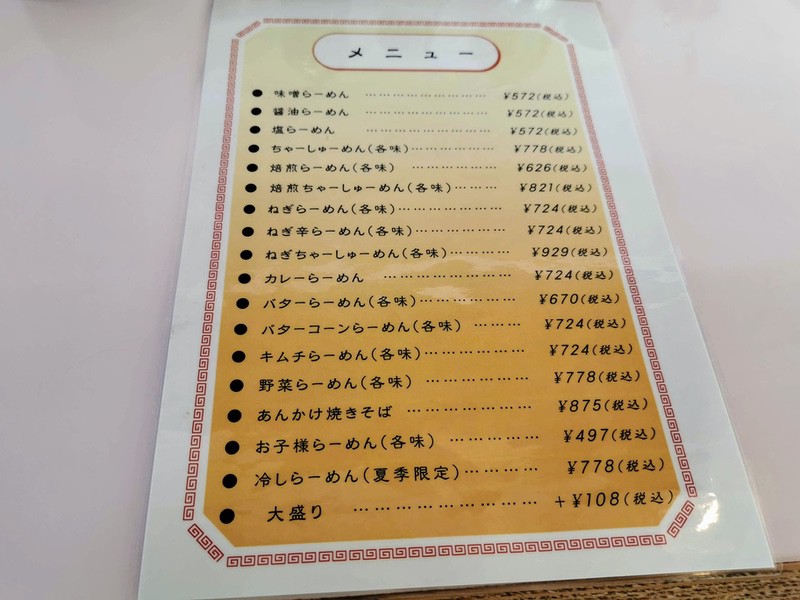 メニュー
● 味噌らーめん ……………………… ¥572(税込)
● 醤油らーめん ……………………… ¥572(税込)
● 塩らーめん ……………………… ¥572(税込)
● ちゃーしゅーめん(各味)…………… ¥778(税込)
● 焙煎らーめん(各味) ……………… ¥626(税込)
● 焙煎ちゃーしゅーめん(各味)……… ¥821(税込)
● ねぎらーめん(各味)………………… ¥724(税込)
● ねぎ辛らーめん(各味)……………… ¥724(税込)
● ねぎちゃーしゅーめん(各味)……… ¥929(税込)
● カレーらーめん …………………… ¥724(税込)
● バターらーめん(各味)……………… ¥670(税込)
● バターコーンらーめん(各味) ……… ¥724(税込)
● キムチらーめん(各味)……………… ¥724(税込)
● 野菜らーめん(各味) ……………… ¥778(税込)
● あんかけ焼きそば ………………… ¥875(税込)
● お子様らーめん(各味) …………… ¥497(税込)
● 冷しらーめん(夏季限定)…………… ¥778(税込)
● 大盛り …………………… +¥108(税込)